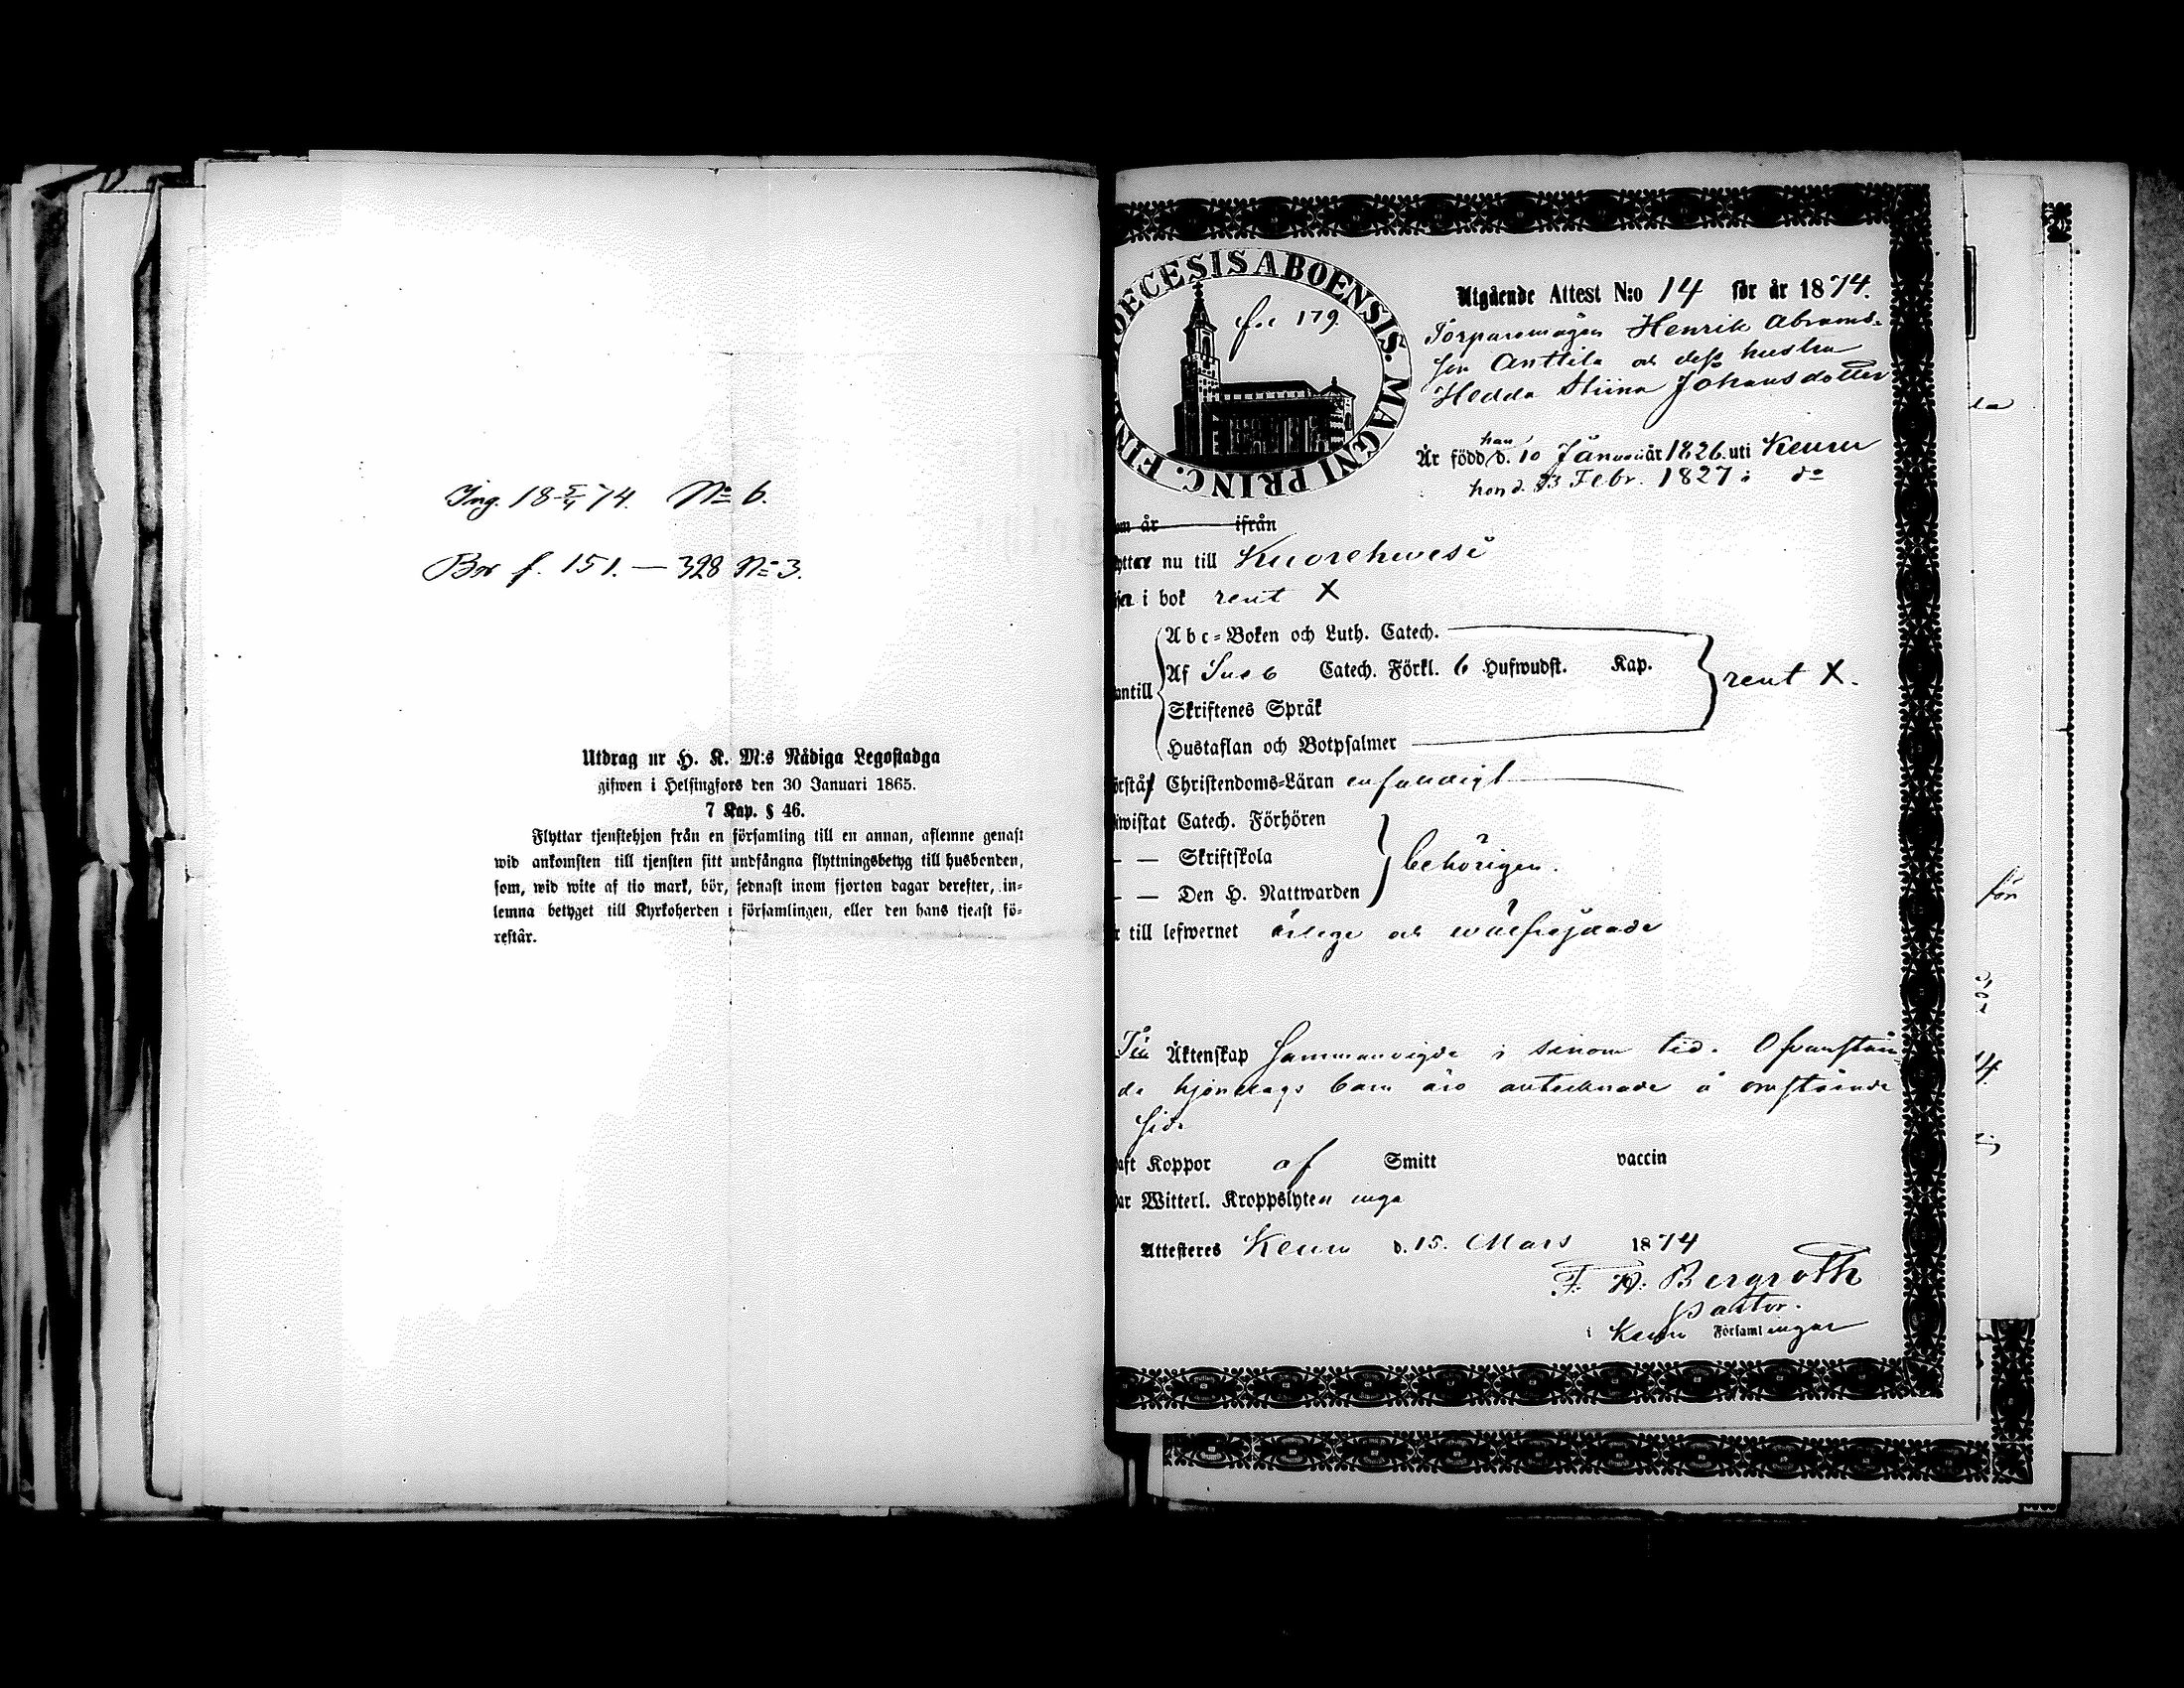 Ing. 18 5/4 74. No 6.
Bor f. 151. — 328 No 3.
Utdrag ur H. K. M:s Nådiga Legostadga
gifwen i Helsingfors den 30 Januari 1865.
7 Kap. § 46.
Flyttar tjenstehjon från en församling till en annan, aflemne genast
wid ankomsten till tjensten sitt undfångna flyttningsbetyg till husbonden,
som, wid wite af tio mark, bör, sednast inom fjorton dagar derefter, in-
lemna betyget till Kyrkoherden i församlingen, eller den hans tjenst fö-
restår.
OECESIS ABOENSIS. MAGNI PRINC. FIN
fol 179.
Utgående Attest N:o 14 för år 1874.
Torparemågen Henrik Abrams-
son Anttila och dess hustru
Hedda Stiina Johansdotter
han
Är född d. 10 Januari år 1826 uti Keuru
hon d. 23 Febr. 1827 i do
om år ifrån
yttar nu till Kuorehwesi
i bok rent X
Abc-Boken och Luth. Catech.
Af Sue 6 Catech. Förkl. 6 Hufwudst. Kap.
rent X.
antill
Skriftenes Språk
Hustaflan och Botpsalmer
örstå Christendoms-Läran enfaldigt
iwistat Catech. Förhören
— — Skriftskola
behörigen.
— — Den H. Nattwarden
r till lefwernet ärlige och wälfrejdade
Till Äktenskap sammanvigde i sinom tid. Ofvanstån-
de hjonelags barn äro antecknade å omstående
sida
aft Koppor af Smitt vaccin
ar Witterl. Kroppslyten inga
Attesteres Keuru d. 15. Mars 1874
F. W. Bergroth
Pastor.
i Keuru Församlingar
för